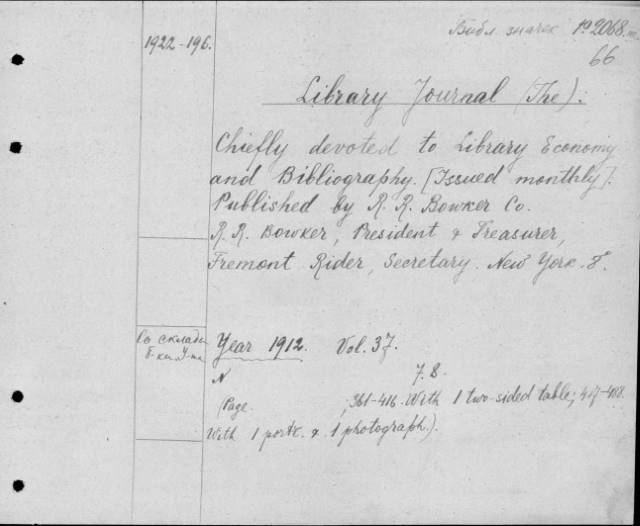 1922-196.
Библ. значек 1º2068.
66
Library Journal (The).
Chiefly devoted to Library Economy
and Bibliography. [Issued monthly].
Published by R. R. Bowker Co.
R. R. Bowker, President & Treasurer,
Fremont Rider, Secretary. New York. 8.
Со склада
б-ки У-та
Year 1912. Vol. 37.
N 7.8.
(Page. ; 361-416. With 1 two-sided table; 417-488.
With 1 portr. & 1 photograph.).